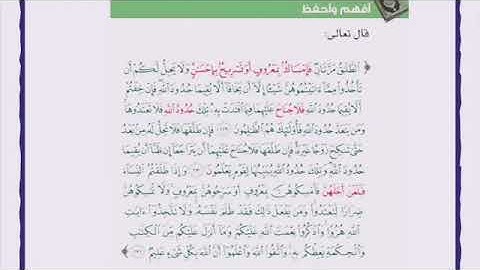 أفهم وأحفظ
قال تعالى:
﴿ الطَّلَاقُ مَرَّتَانِ فَإِمْسَاكٌ بِمَعْرُوفٍ أَوْ تَسْرِيحٌ بِإِحْسَانٍ وَلَا يَحِلُّ لَكُمْ أَن
تَأْخُذُوا مِمَّا آتَيْتُمُوهُنَّ شَيْئًا إِلَّا أَن يَخَافَا أَلَّا يُقِيمَا حُدُودَ اللَّهِ فَإِنْ خِفْتُمْ
أَلَّا يُقِيمَا حُدُودَ اللَّهِ فَلَا جُنَاحَ عَلَيْهِمَا فِيمَا افْتَدَتْ بِهِ تِلْكَ حُدُودُ اللَّهِ فَلَا تَعْتَدُوهَا
وَمَن يَتَعَدَّ حُدُودَ اللَّهِ فَأُولَٰئِكَ هُمُ الظَّالِمُونَ ﴿٢٢٩﴾ فَإِن طَلَّقَهَا فَلَا تَحِلُّ لَهُ مِن بَعْدُ
حَتَّىٰ تَنكِحَ زَوْجًا غَيْرَهُ فَإِن طَلَّقَهَا فَلَا جُنَاحَ عَلَيْهِمَا أَن يَتَرَاجَعَا إِن ظَنَّا أَن يُقِيمَا
حُدُودَ اللَّهِ وَتِلْكَ حُدُودُ اللَّهِ يُبَيِّنُهَا لِقَوْمٍ يَعْلَمُونَ ﴿٢٣٠﴾ وَإِذَا طَلَّقْتُمُ النِّسَاءَ
فَبَلَغْنَ أَجَلَهُنَّ فَأَمْسِكُوهُنَّ بِمَعْرُوفٍ أَوْ سَرِّحُوهُنَّ بِمَعْرُوفٍ وَلَا تُمْسِكُوهُنَّ
ضِرَارًا لِّتَعْتَدُوا وَمَن يَفْعَلْ ذَٰلِكَ فَقَدْ ظَلَمَ نَفْسَهُ وَلَا تَتَّخِذُوا آيَاتِ
اللَّهِ هُزُوًا وَاذْكُرُوا نِعْمَتَ اللَّهِ عَلَيْكُمْ وَمَا أَنزَلَ عَلَيْكُم مِّنَ الْكِتَابِ
وَالْحِكْمَةِ يَعِظُكُم بِهِ وَاتَّقُوا اللَّهَ وَاعْلَمُوا أَنَّ اللَّهَ بِكُلِّ شَيْءٍ عَلِيمٌ ﴿٢٣١﴾ ﴾